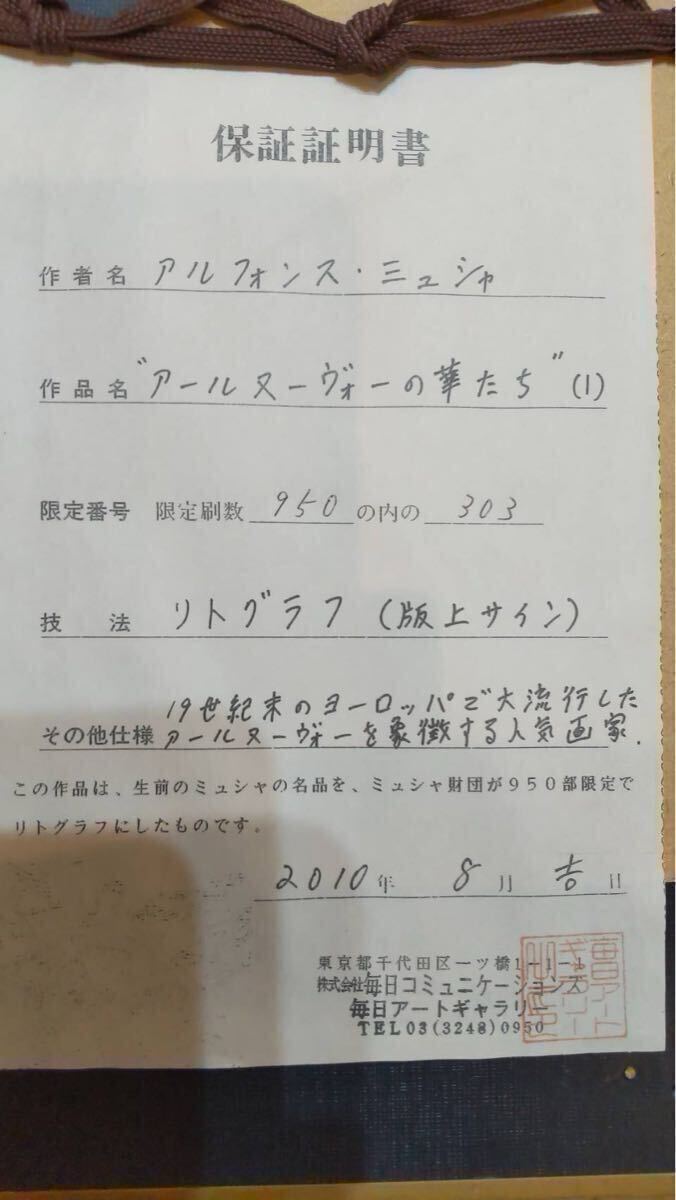 保証証明書
作者名 アルフォンス・ミュシャ
作品名 "アールヌーヴォーの華たち" (1)
限定番号 限定刷数 950 の内の 303
技 法 リトグラフ (版上サイン)
19世紀末のヨーロッパで大流行した
その他仕様 アールヌーヴォーを象徴する人気画家.
この作品は、生前のミュシャの名品を、ミュシャ財団が950部限定で
リトグラフにしたものです。
2010 年 8 月 吉 日
東京都千代田区一ツ橋1-1-1
株式会社毎日コミュニケーションズ
毎日アートギャラリー
TEL03(3248)0950